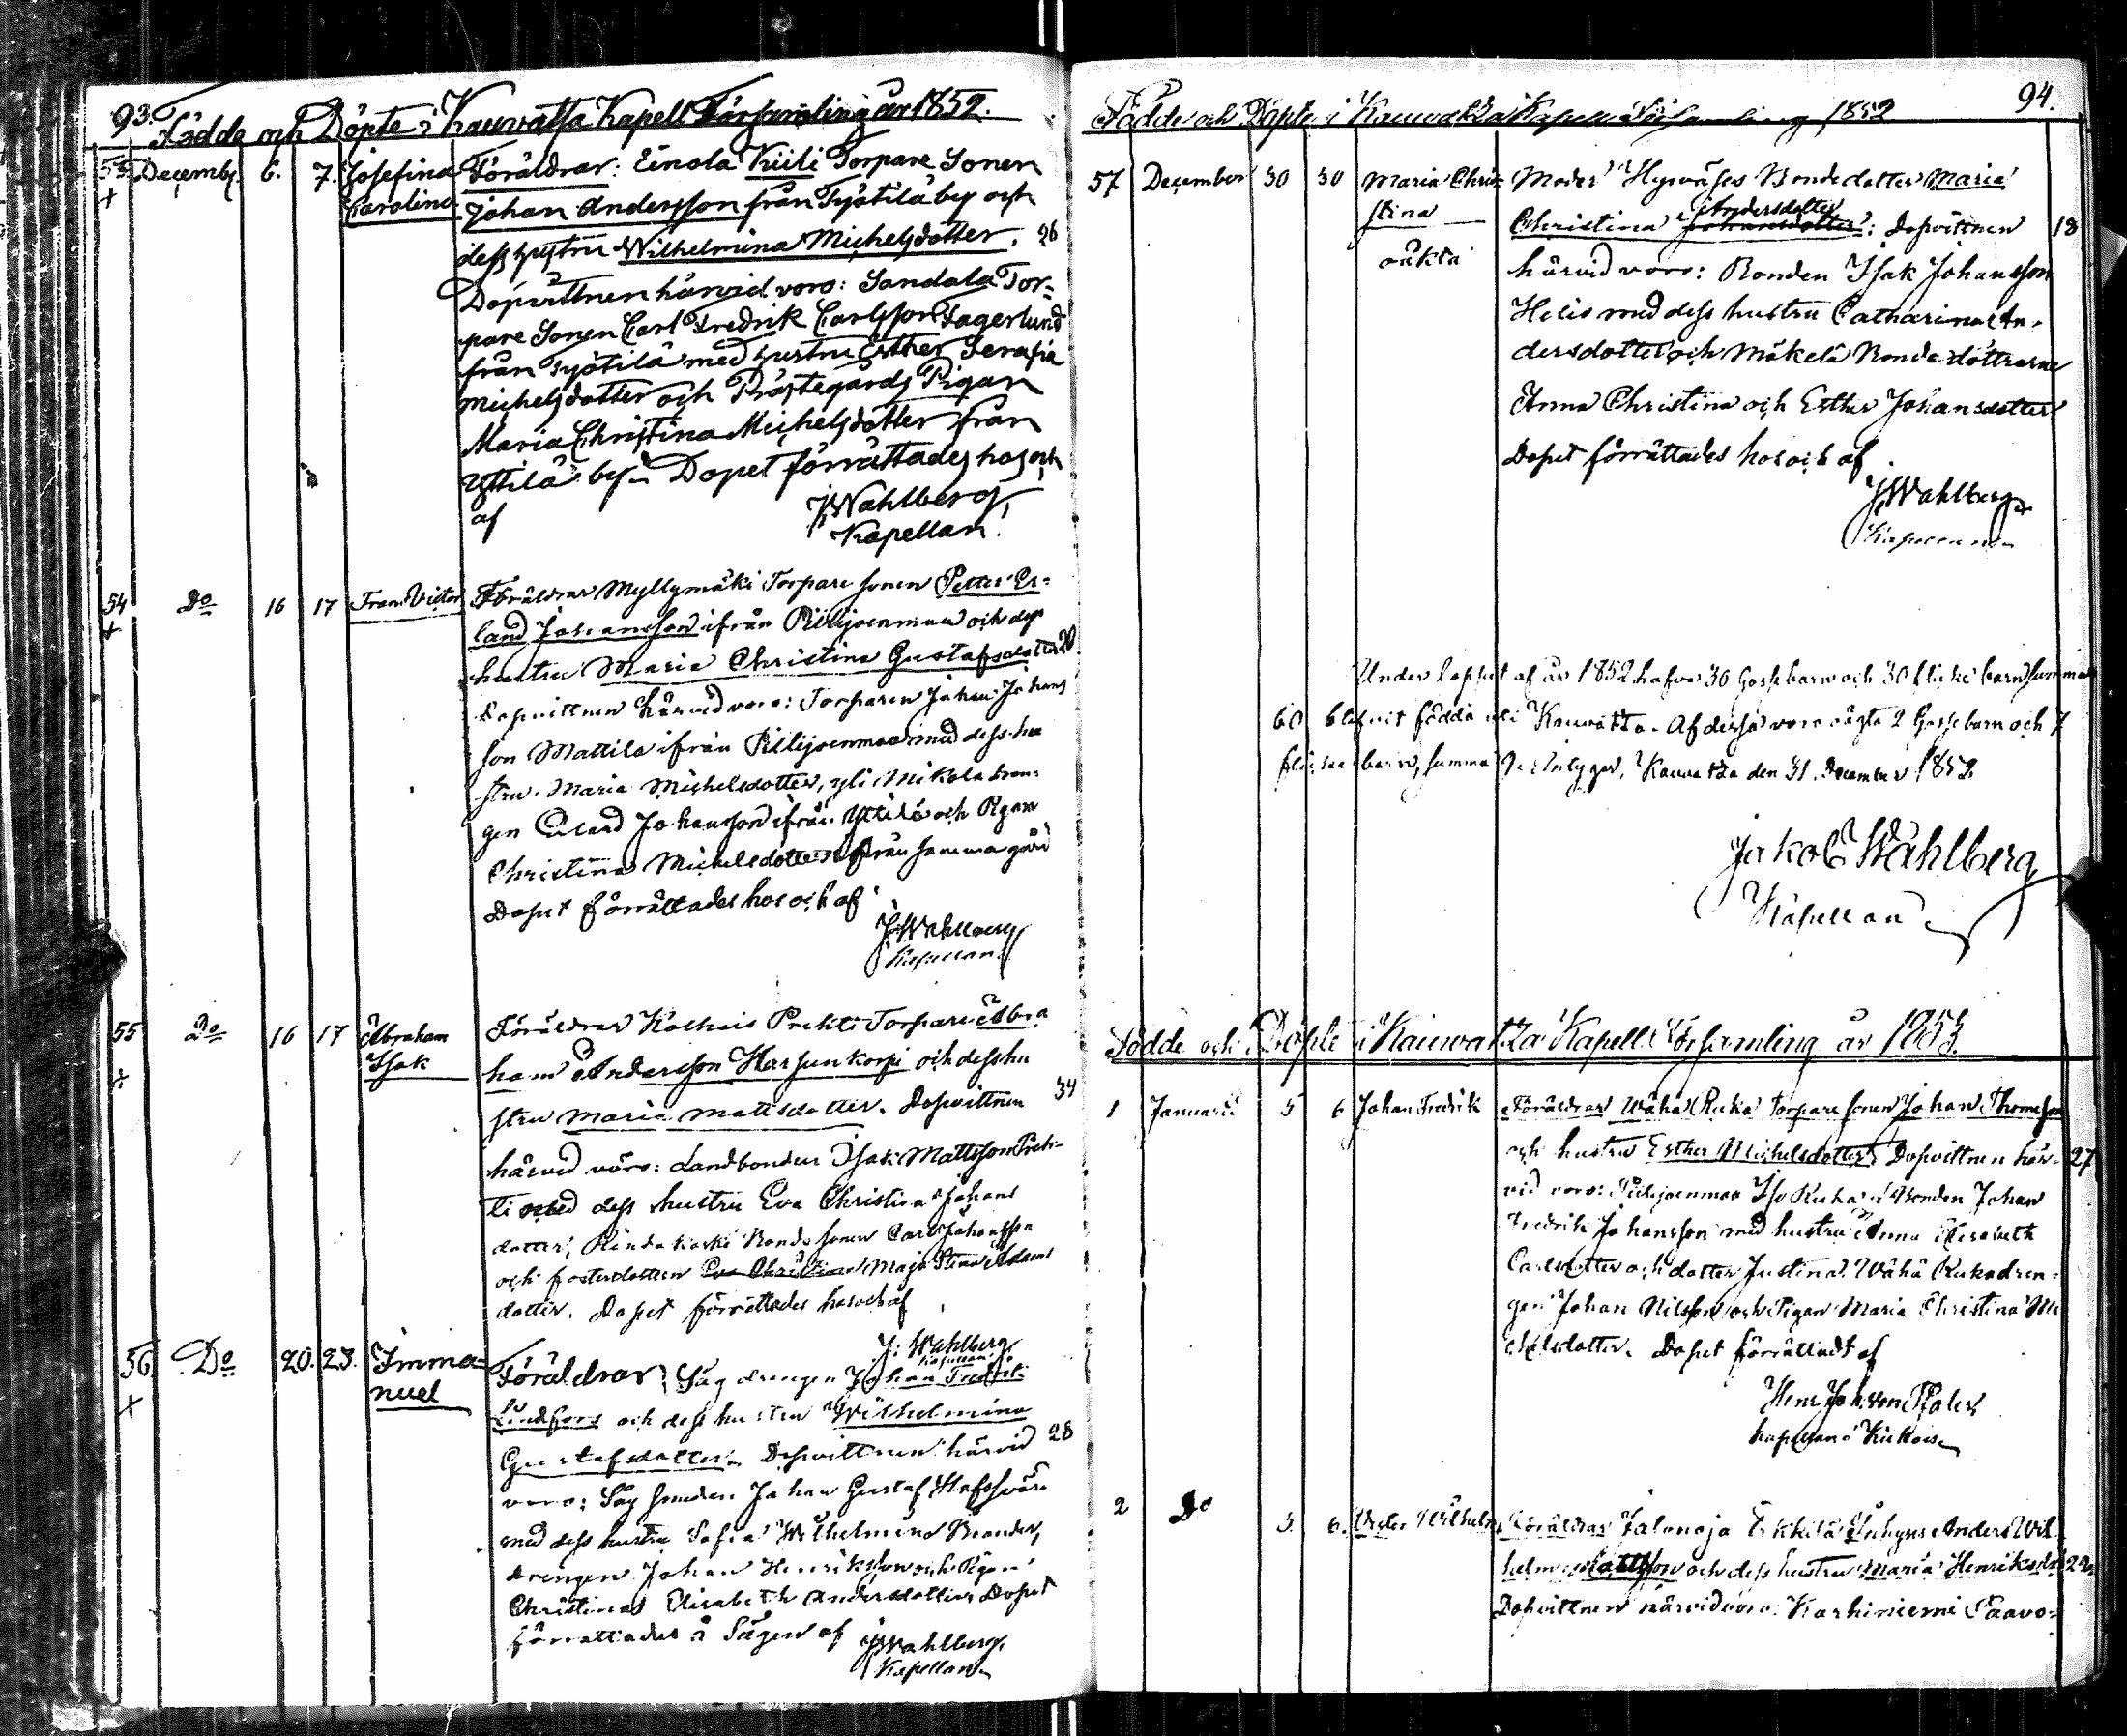 93.
Födde och Döpte i Kauvatsa Kapell Församling år 1852.
53. Decemb. 6. 7. Josefina Föräldrar: Einola Kiili Torpare Sonen
+ Carolina Johan Andersson från Pyötilä by och
dess hustru Wilhelmina Michelsdotter. 26
Dopvittnen härvid voro: Sandala Tor-
pare Sonen Carl Fredrik Carlsson Fagerlund
från Työtilä med hustru Esther Serafia
Michelsdotter och Prästegårds Pigan
Maria Christina Michelsdotter från
Yttilä by. Dopet förrättades hos och
af J. Wahlberg,
Kapellan.
54 Do 16 17 Frans Victor Föräldrar Myllymäki Torpare sonen Petter Er-
+ land Johansson ifrån Piilijoenmaa och dess
hustru Maria Christina Gustafsdotter 20
Dopvittnen härvid voro: Torparen Johan Johans
son Mattila ifrån Piilijoenmaa med dess hu
stru Maria Michelsdotter, yli Mikola dren-
gen Erland Johansson ifrån Yttilä och Pigan
Christina Michelsdotter ifrån samma gård
Dopet förrättades hos och af
J. Wahlberg
Kapellan.
55 Do 16 17 Abraham Föräldrar Kolhais Prekti Torpare Abra
+ Isak ham Andersson Harjunkorpi och dess hu
stru Maria Mattsdotter. Dopvittnen 34
härvid voro: Landbonden Isak Mattsson Prek-
ti med dess hustru Eva Christina Johans
dotter, Rindakoski Bonde sonen Carl Johansson
och fosterdottren Eva Christina Maja Stina Adams
dotter. Dopet förrättades hos och af
J. Wahlberg
Kapellan.
56 Do 20. 23. Imma- Föräldrar: Såg drengen Johan Fredrik
+ nuel Lindfors och dess hustru Wilhelmina
Gustafsdotter. Dopvittnen härvid 28
voro: Såg smeden Johan Gustaf
med dess hustru Sofia Wilhelmina Brander,
drengen Johan Henriksson och Pigan
Christina Elisabeth Andersdotter. Dopet
förrättades å Sågen af J. Wahlberg,
Kapellan.
94.
Födde och Döpte i Kauvatsa Kapell Församling 1852
57 December 30 30 Maria Chri- Moder Hyrväjes Bondedotter Maria
stina Christina Johansdotter Andersdotter: Dopvittnen 18
oäkta härvid voro: Bonden Isak Johansson
Helis med dess hustru Catharina An-
dersdotter och Mäkelä Bonde döttrarne
Anna Christina och Esther Johansdotter
Dopet förrättades hos och af
J. Wahlberg
Kapellan
Under loppet af år 1852 hafva 30 Gossebarn och 30 flickebarn summa
60 blifvit födda uti Kauvatsa. Af dessa voro oägta 2 Gossebarn och 7
flickebarn, summa 9. Intygar, Kauvatsa den 31. December 1852
Jakob Wahlberg
Kapellan
Födde och Döpte i Kauvatsa Kapells Församling år 1853.
1 Januari 5 6 Johan Fredrik Föräldrar Wähä Ruka Torpare sonen Johan Thomasson
och hustru Esther Michelsdotter. Dopvittnen här- 27
vid voro: Piilijoenmaa Iso Ruka Bonden Johan
Fredrik Johansson med hustru Anna Elisabeth
Carlsdotter och dotter Justina. Wähä Ruka dren-
gen Johan Nilsson och Pigan Maria Christina Mi
chelsdotter. Dopet förrättadt af
Henr. Joh. von Pfaler
kapellan i Kiikois
2 Do 5. 6. Victor Wilhelm Föräldrar Jalonoja Erkkilä Inhyses Anders Wil
helm Mattsson och dess hustru Maria Henriksdr 22
Dopvittnen härvid voro: Karhiniemi Paavo-